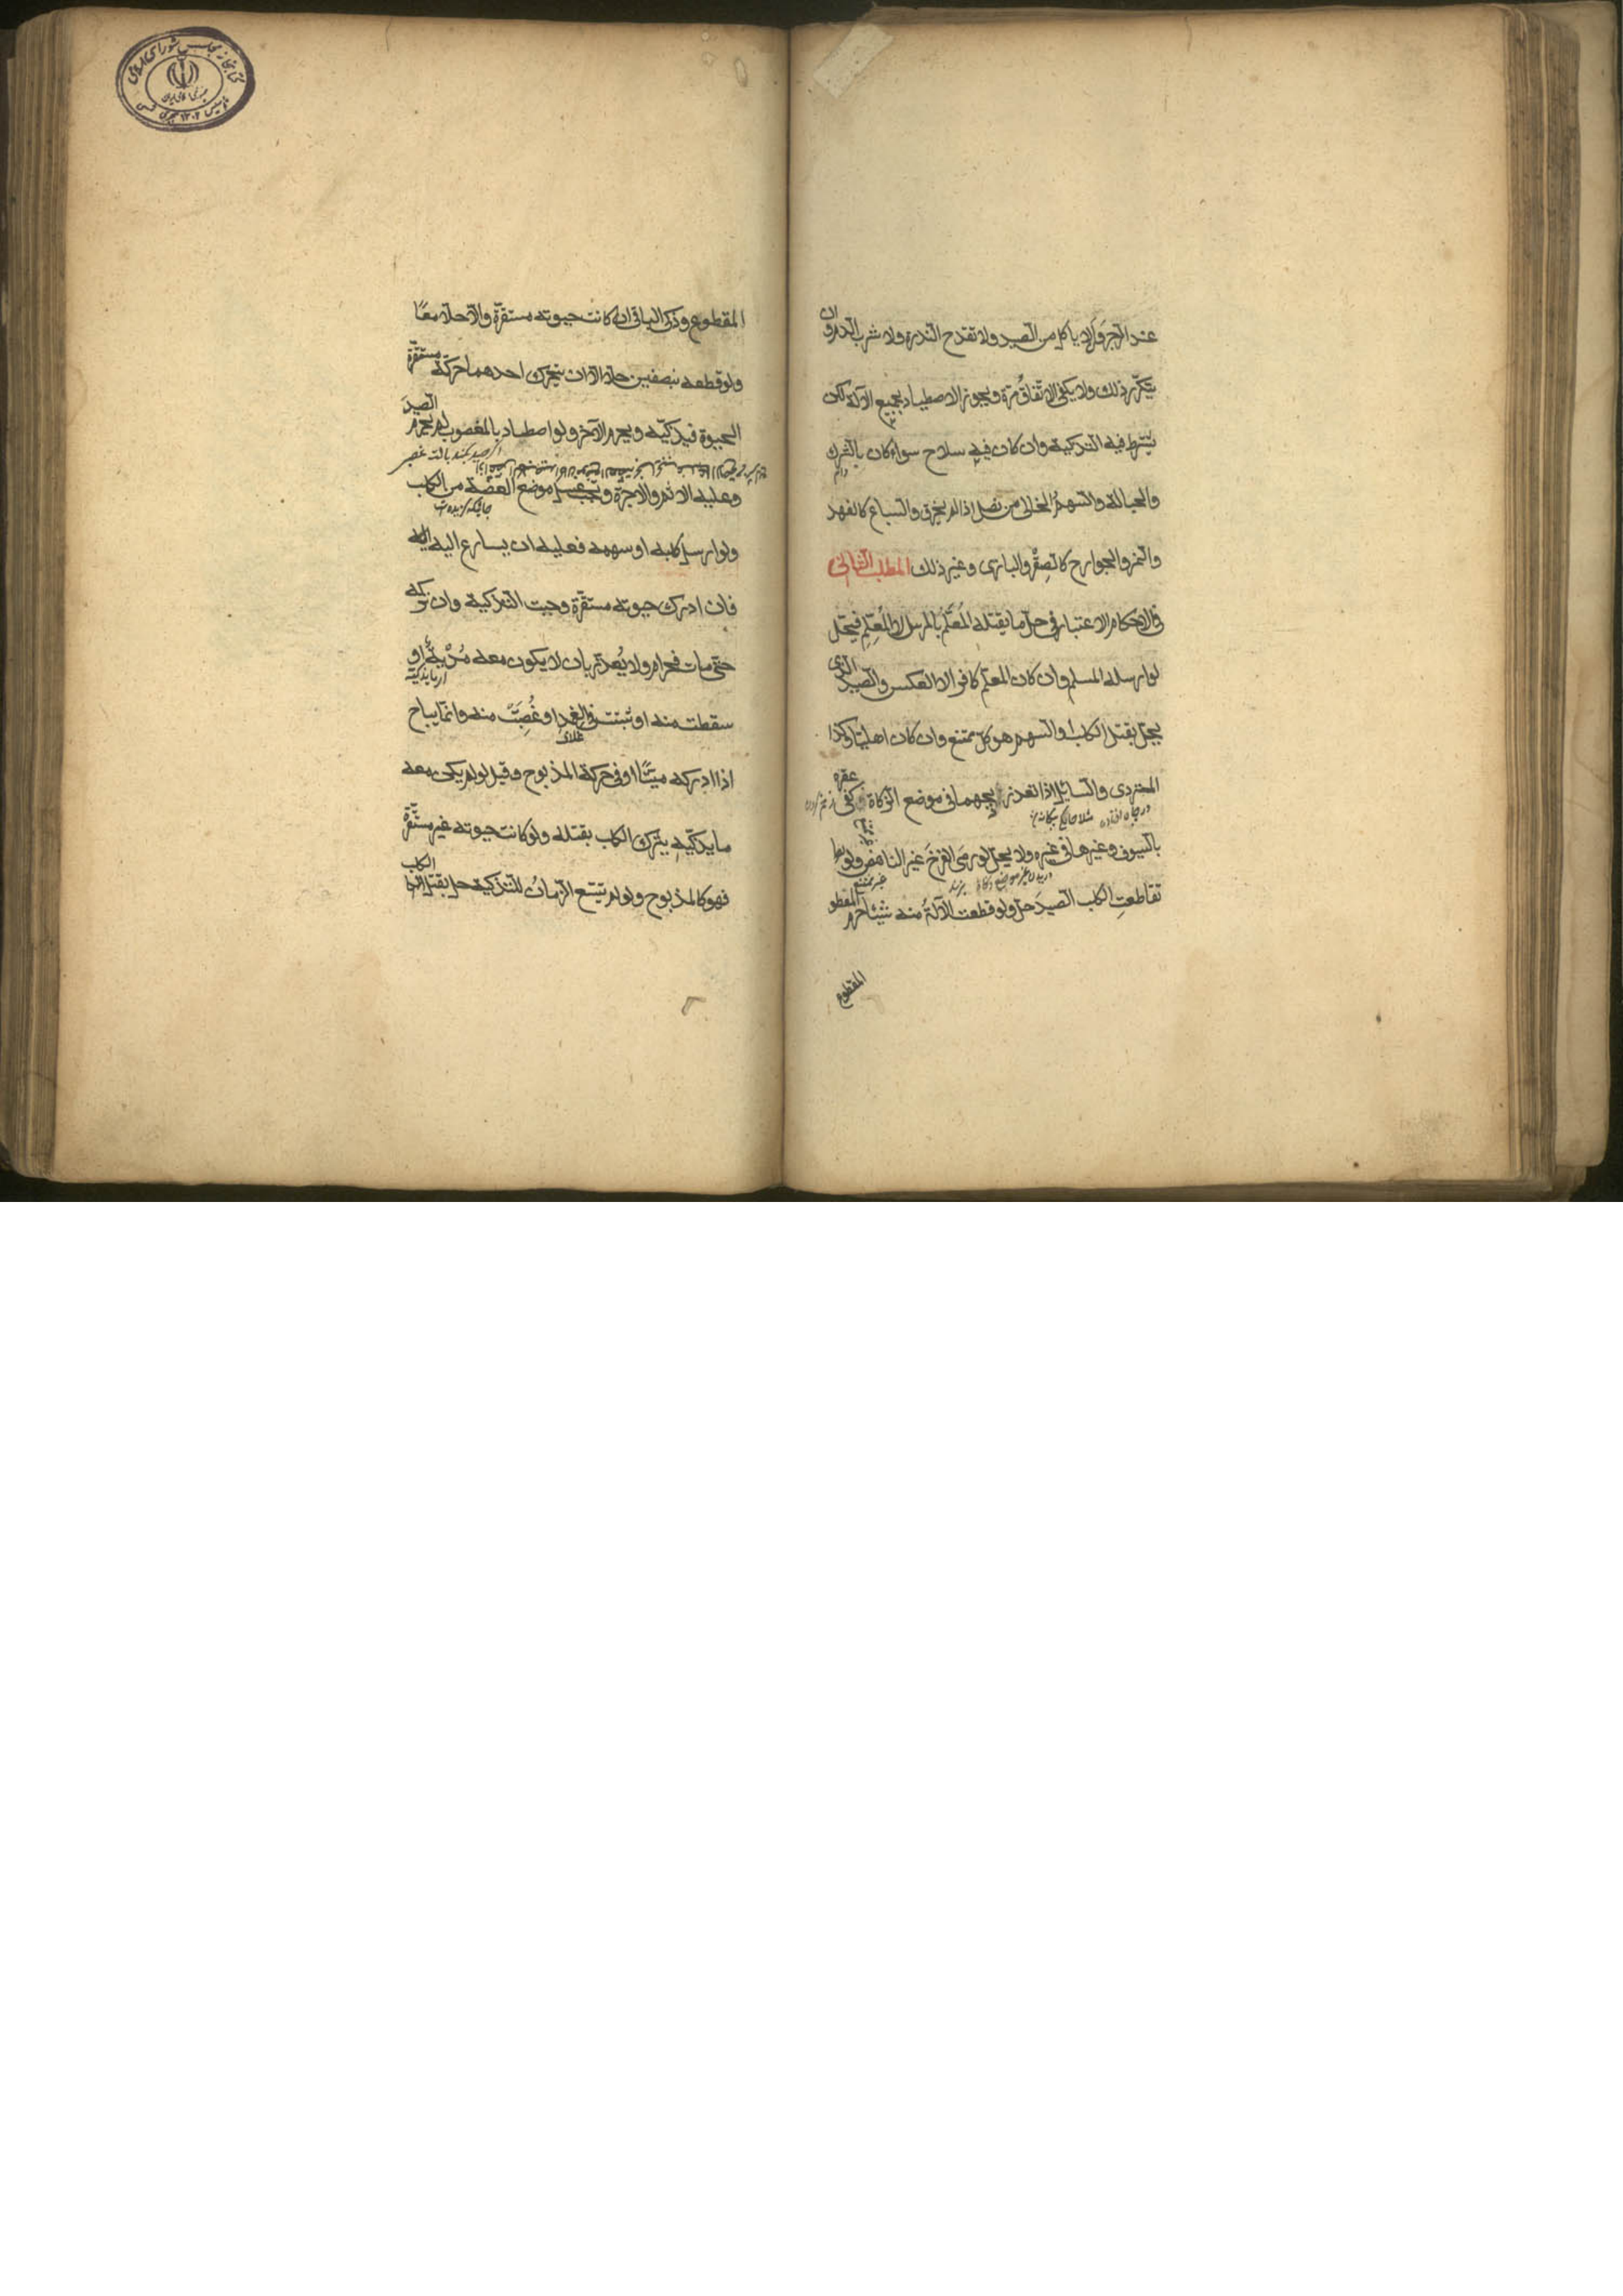 عند الزجر وَأَلّا ياكل من الصيد ولا تقدح الندرة ولا شرب الدم وان
يتكرّر ذلك ولا يكفى الاتّفاقُ مرّة ويجوز الاصطياد بجميع الآلة لكن
يشترط فيه التذكية وان كان فيه سلاح سواء كان بالشرك
دام
والحبالة والسهمُ الخالى من نصل اذا لم يخرق والسباع كالفهد
والنمر والجوارح كالصِقْر والبازى وغير ذلك المطلب الثانى
فى الاحكام الاعتبار فى حلّ ما يقتله المُعَلَّمُ بالمرسل لا المُعَلِّمِ فيحلّ
لو ارسله المسلم وان كان المعلّم كافرا لا العكس والصيد الذى
يحلّ بقتل الكلب او السهم هو كلّ ممتنع وان كان اهليّا وكذا
المتردى والصائل اذا تعذر ذبحهما فى موضع الزكاة وكفى عقره
در چاه افتاده
بالسيوف وغيرها فى غيره ولا يحلّ لو رمى الفرخَ غير الناهض ولو
غير ممتنع
تقاطعتِ الكلب الصيدَ حلّ ولو قطعت الآلةُ منه شيئا حرم المقطو
المقطوع
المقطوع وذكى الباقى ان كانت حيوته مستقرّة والّا حلّا معًا
ولو قطعه نبصفين حلّا الّا ان يتحرك احدهما حركة مستقرّة
الحيوة فيذكيّه ويحرم الآخر ولو اصطاد بالمغصوب لم يحرم الصيدَ
اگر صيد بكند بالت غصبى
وعليه الاثم والاجرة ويجب غسل موضع العضّة من الكلب
ولو ارسل كلبه او سهمه فعليه ان يسارع اليه
فان ادرك حيوته مستقرّة وجبت التذكية وان تركه
حتّى مات فحرام ولا يُعذر بان لا يكون معه مُدْيةٌ او
سقطت منه او ثبتت فى الغمد او غُصِبَتْ منه وانّما يباح
غلاف
اذا ادركه ميّتًا او فى حركة المذبوح وقيل لو لم يكن معه
ما يذكّيه يترك الكلب بقتله ولو كانت حيوته غير مستقرّة
فهو كالمذبوح ولو لم يتّسع الزمانُ للتذكية حلّ بقتل الكلب